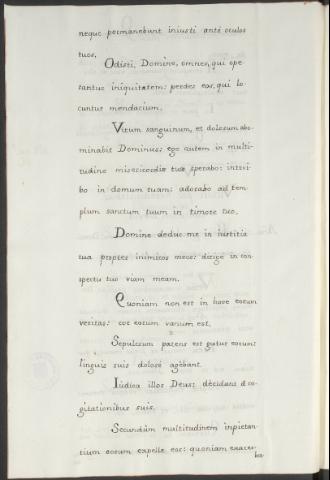 neque permanebunt iniusti ante oculos
tuos.
Odisti, Domine, omnes, qui ope
rantur iniquitatem: perdes eos, qui lo
cuntur mendacium.
Virum sanguinum, et dolosum abo
minabit Dominus: ego autem in multi
tudine misericordiæ tuæ sperabo: introi
bo in domum tuam: adorabo ad tem
plum sanctum tuum in timore tuo.
Domine deduc me in iustitia
tua propter inimicos meos: dirige in con
spectu tuo viam meam.
Quoniam non est in hore eorum
veritas: cor eorum vanum est.
Sepulcrum patens est gutur eorum:
linguis suis dolosè agebant.
Iudica illos Deus: decidant à co
gitationibus suis.
Secundùm multitudinem inpietan
tium eorum expelle eos: quoniam exacer
ba